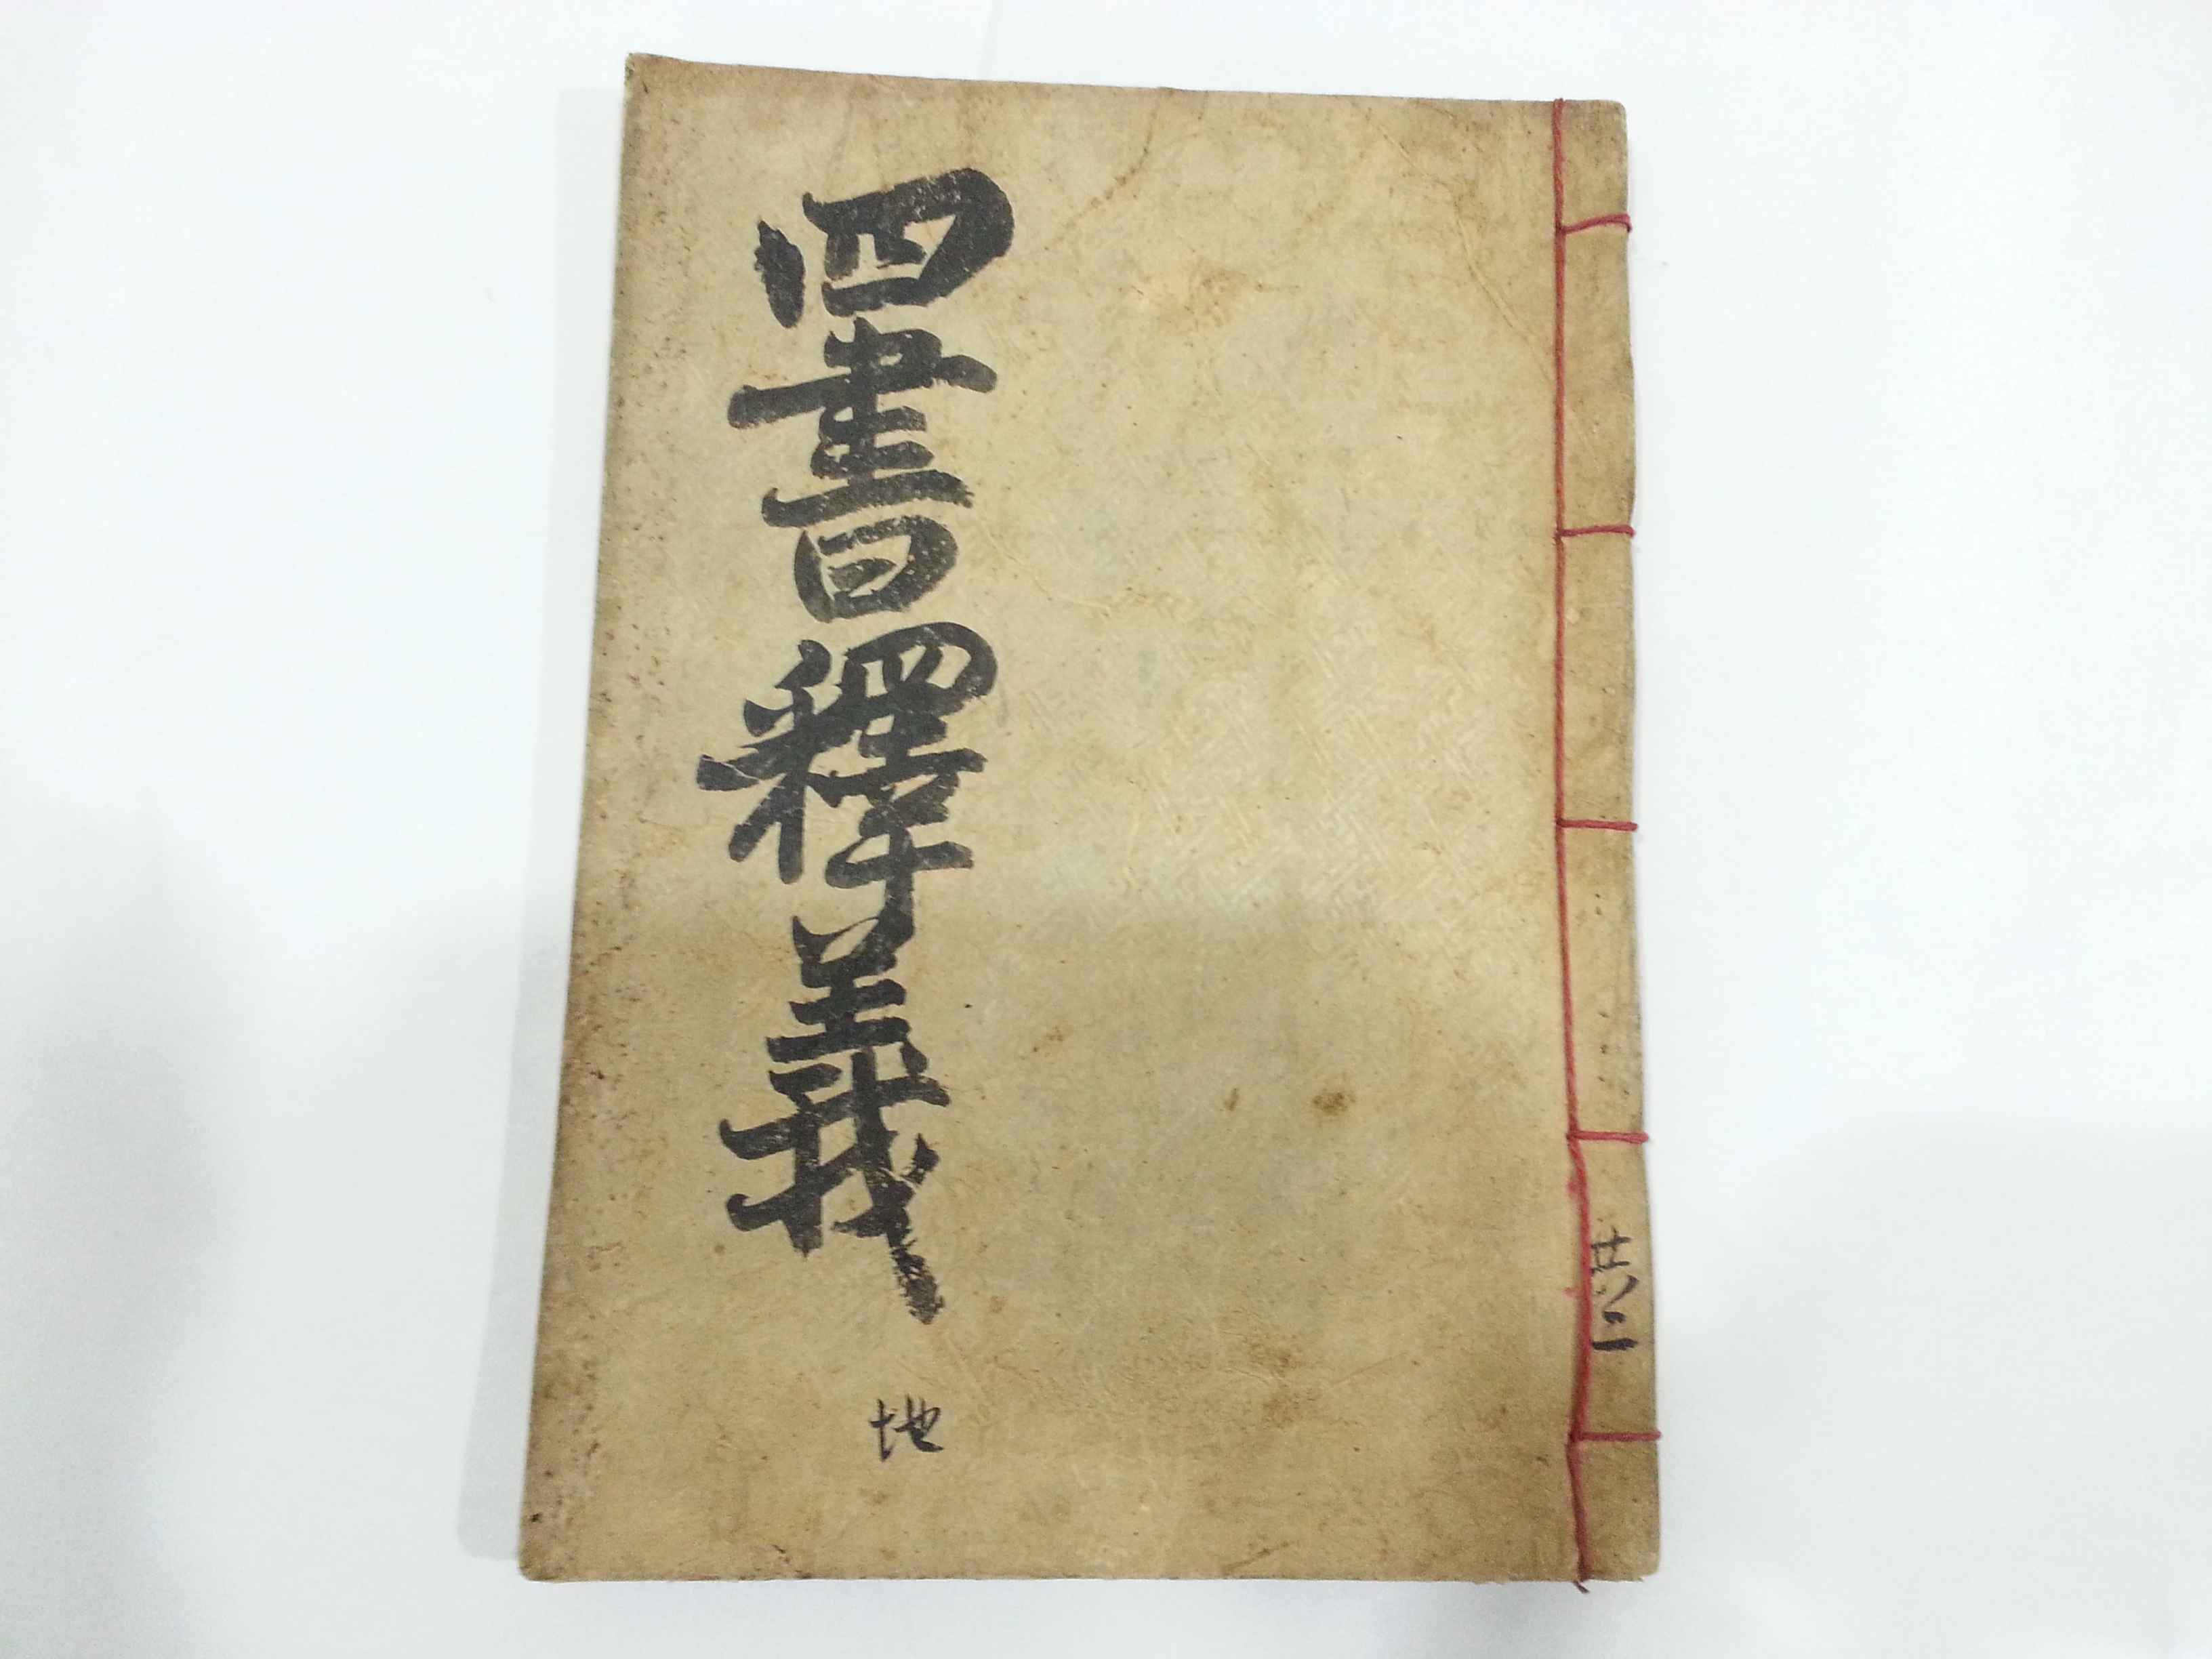 四書釋義
地
共二